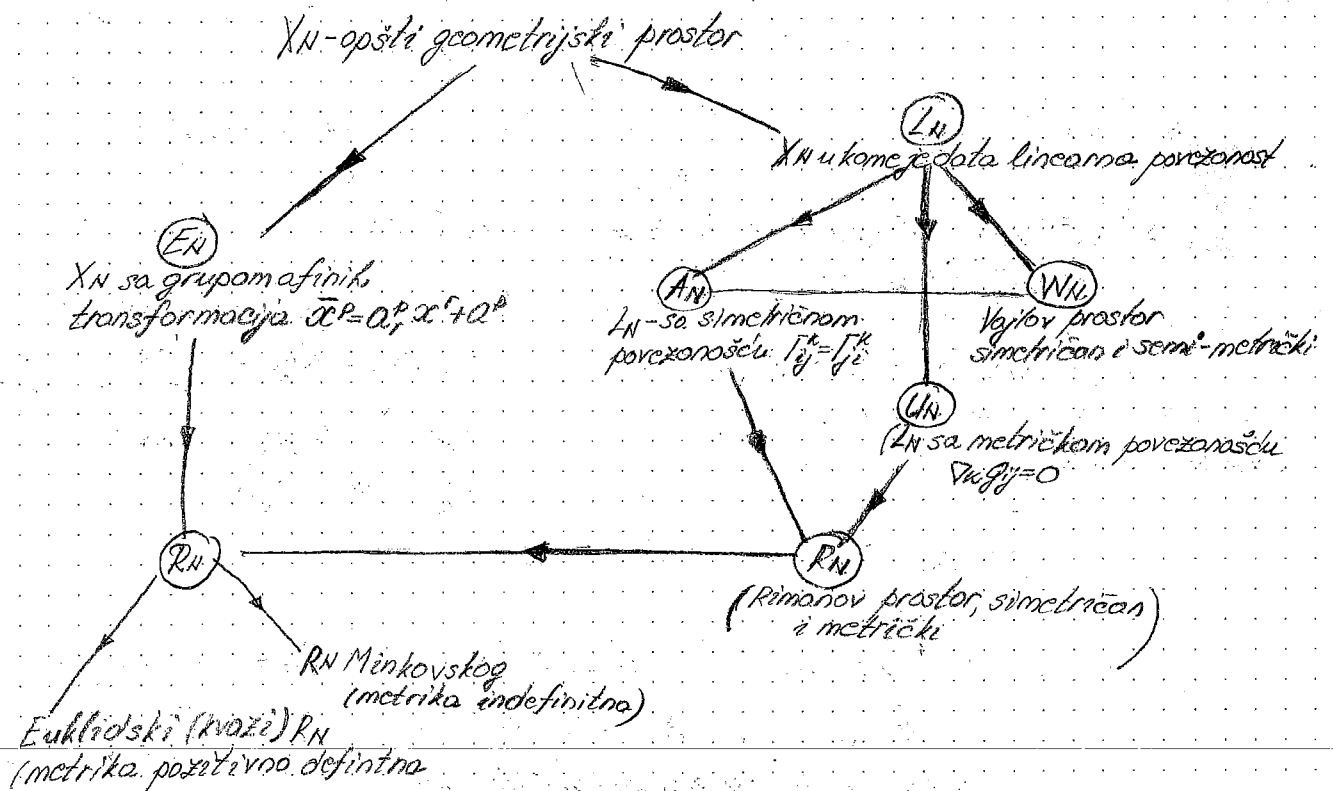 XN-opšti geometrijski prostor
LN
XN u kome je data linearna povezanost
EN
XN sa grupom afinih
transformacija x̄ᵖ=aᵖᵣ xʳ+aᵖ
AN
LN-sa simetričnom
povezanošću Γᵏij=Γᵏji
WN
Vajlov prostor
simetričan i semi-metrički
UN
(LN sa metričkom povezanošću
∇k gij=0
RN
RN
(Rimanov prostor, simetričan)
i metrički
RN Minkovskog
(metrika indefinitna)
Euklidski (kvazi) RN
(metrika pozitivno defintna